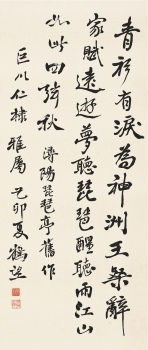 青衫有淚為神洲王粲辭
家賦遠遊夢聽琵琶醒聽雨江山
如此四弦秋 潯陽琵琶亭舊作
巨川仁棣雅屬 己卯夏鶴